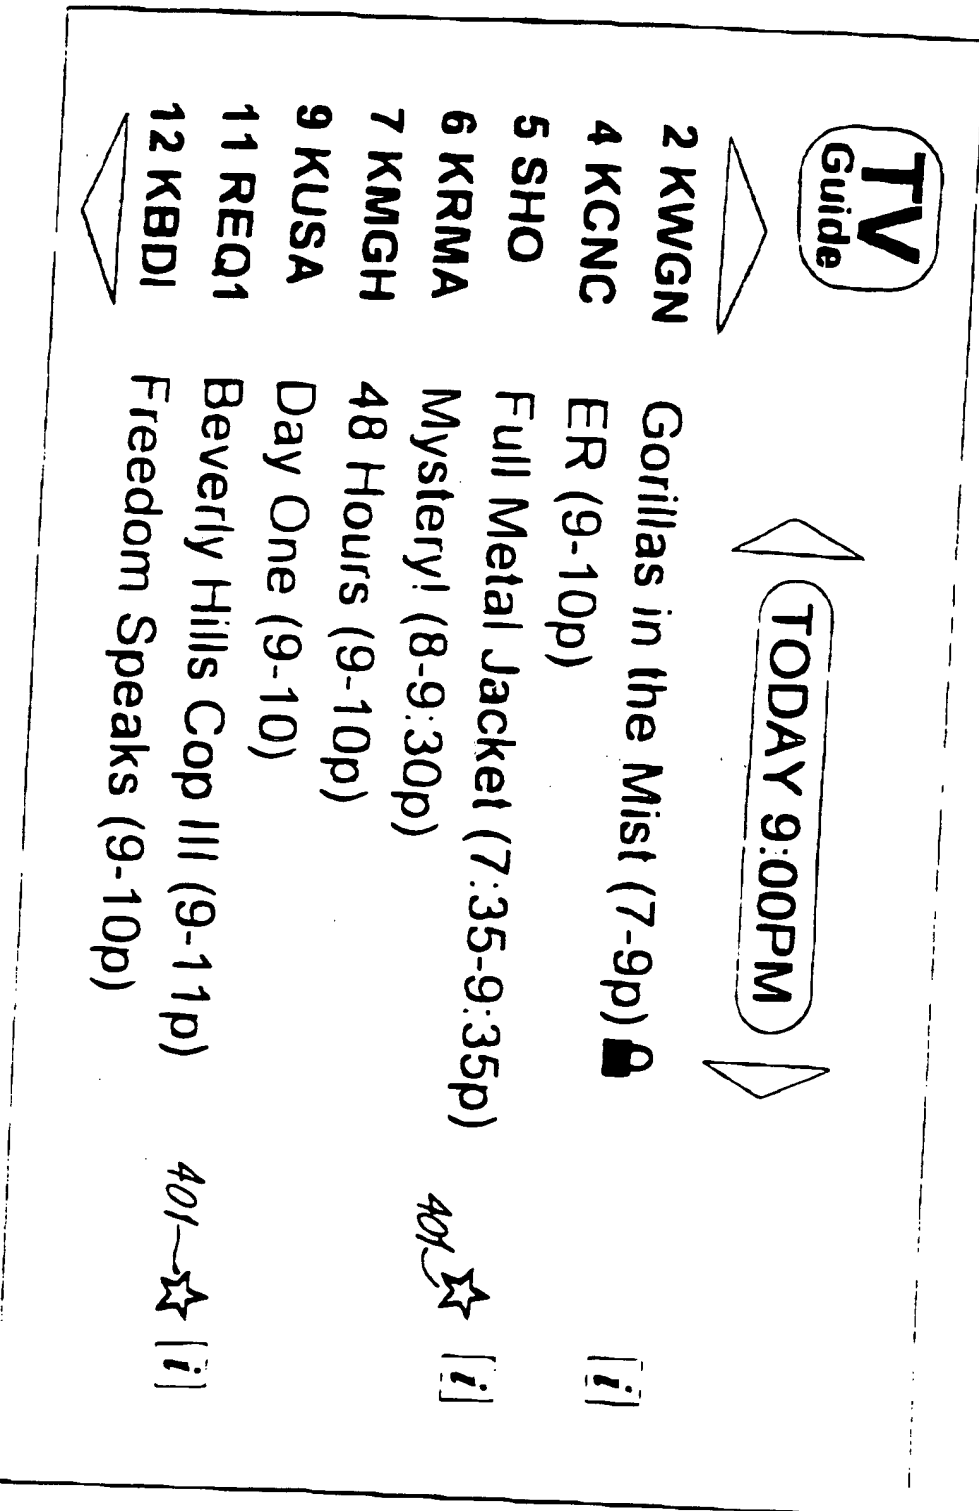 TV
Guide
TODAY 9:00PM
2 KWGN Gorillas in the Mist (7-9p)
4 KCNC ER (9-10p) i
5 SHO Full Metal Jacket (7:35-9:35p)
6 KRMA Mystery! (8-9:30p) 401 i
7 KMGH 48 Hours (9-10p)
9 KUSA Day One (9-10)
11 REQ1 Beverly Hills Cop III (9-11p)
12 KBDI Freedom Speaks (9-10p) 401 i